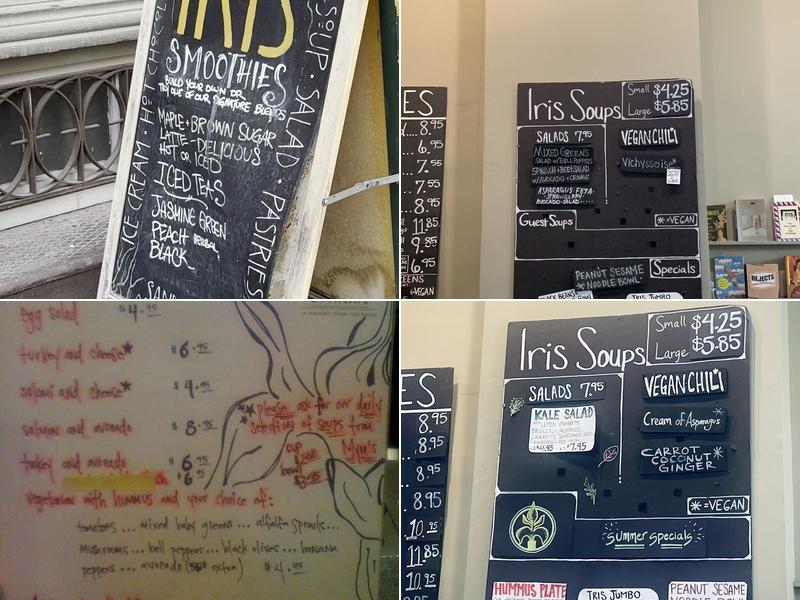 IRIS
SMOOTHIES
BUILD YOUR OWN OR
TRY ONE OF OUR SIGNATURE BLENDS
MAPLE + BROWN SUGAR
LATTE - DELICIOUS
HOT OR ICED
ICED TEAS
JASMINE GREEN
PEACH HERBAL
BLACK
ICE CREAM • HOT CHOCOL
SOUP • SALAD • PASTRIES
ES
8.95
6.
7.55
7.55
8.95
11.85
9.85
6.95
+VEGAN
Iris Soups
Small $4.25
Large $5.85
SALADS 7.95
MIXED GREENS
SALAD W/ BELL PEPPERS
SPINACH + BEET SALAD
W/ AVOCADO + ORANGE
ASPARAGUS - FETA -
STRAWBERRY
AVOCADO - SALAD
VEGAN CHILI
Vichyssoise*
GUEST SOUPS
*=VEGAN
PEANUT SESAME
* NOODLE BOWL
Specials
BLACK BEANS
TRIS JUMBO
REJECTS
egg salad $4.95
turkey and cheese* $6.95
salami and cheese* $4.95
salmon and avocado $8.95
turkey and avocado $6.75
$6.95
vegetarian with HUMMUS and your choice of:
tomatoes ... mixed baby greens ... alfalfa sprouts...
mushrooms ... bell peppers ... black olives ... banana
peppers ... avocado (50¢ extra) $4.95
** please ask for our daily
selection of soups from
cup
bowl
ES
8.95
8.95
8.95
8.95
10.95
11.85
10.95
Iris Soups
Small $4.25
Large $5.85
SALADS 7.95
KALE SALAD
BROCCOLI, ALMONDS,
$7.95
VEGAN CHILI
Cream of Asparagus*
CARROT
COCONUT*
GINGER
*=VEGAN
Summer Specials
HUMMUS PLATE
TRIS JUMBO
PEANUT SESAME
NOODLE BOWL